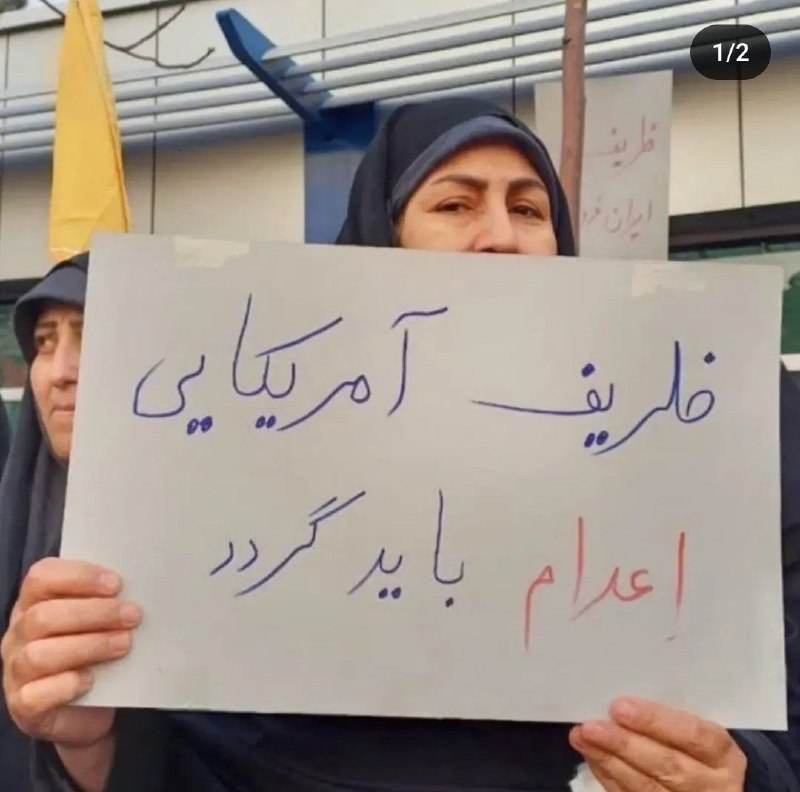 1/2
ظریف
ایران
ظریف آمریکایی
اعدام باید گردد